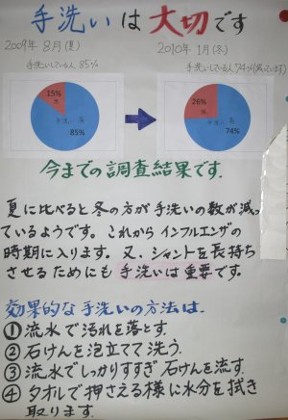 手洗いは大切です
2009年 8月(夏)
2010年 1月(冬)
手洗いしている人 85%
手洗いしている人 74%
15%
85%
26%
74%
今までの調査結果です.
夏に比べると冬の方が手洗いの数が減っ
ているようです。これからインフルエンザの
時期に入ります。又、シャントを長持ち
させるためにも 手洗いは重要です。
効果的な手洗いの方法は、
① 流水で汚れを落とす.
② 石けんを泡立てて洗う.
③ 流水でしっかりすすぎ石けんを流す.
④ タオルで押さえる様に水分を拭き
取ります.